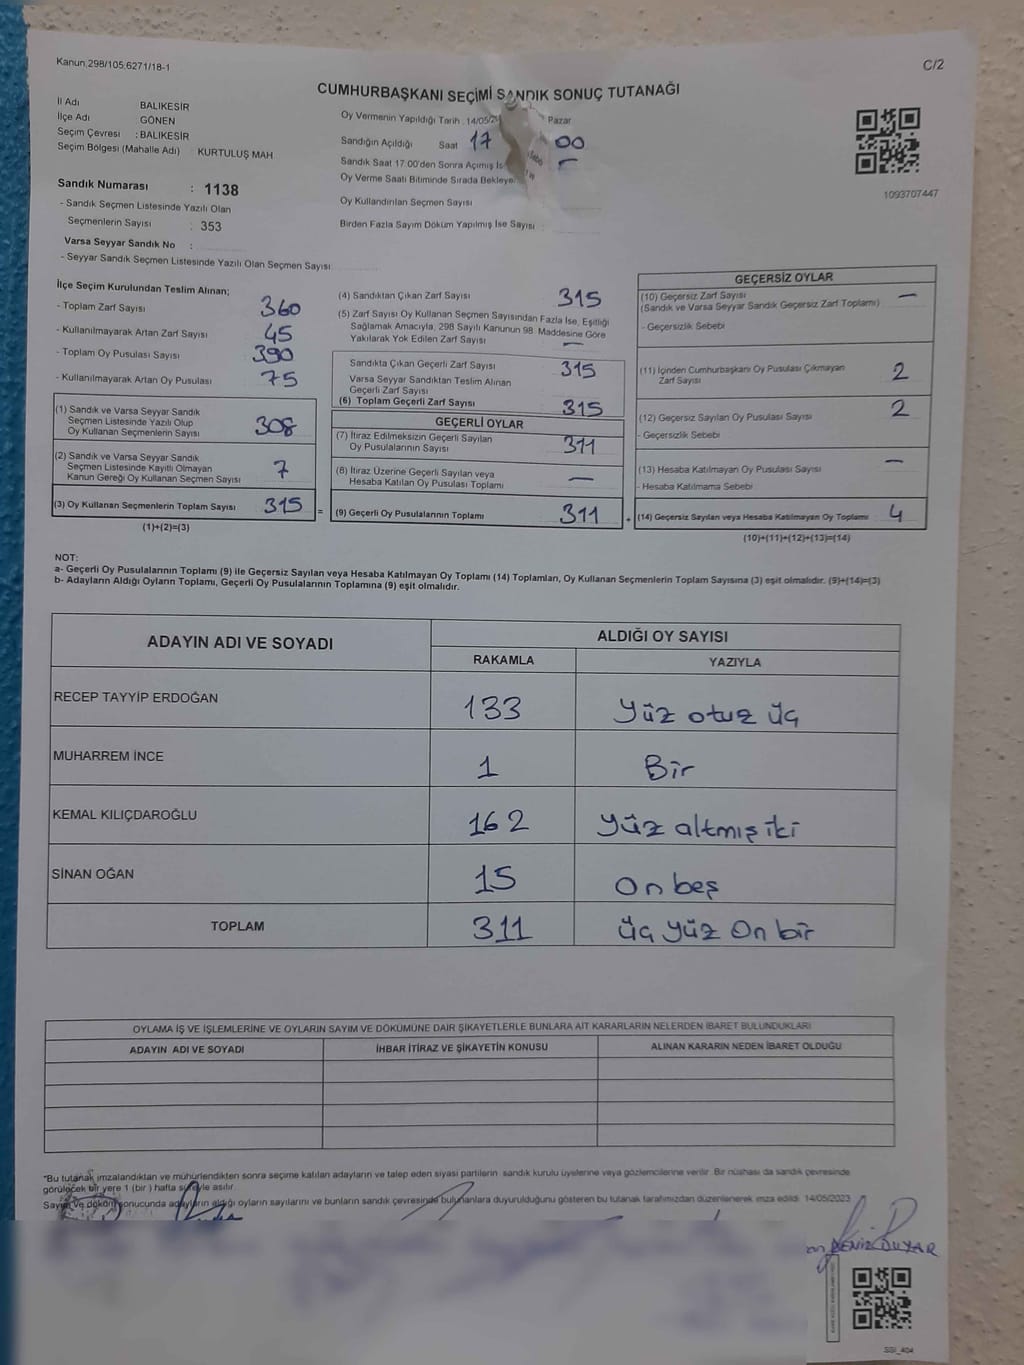 Kanun,298/105;6271/18-1
C/2
CUMHURBAŞKANI SEÇİMİ SANDIK SONUÇ TUTANAĞI
İl Adı BALIKESİR
İlçe Adı GÖNEN
Seçim Çevresi : BALIKESİR
Seçim Bölgesi (Mahalle Adı) : KURTULUŞ MAH
Sandık Numarası : 1138
- Sandık Seçmen Listesinde Yazılı Olan
Seçmenlerin Sayısı : 353
Varsa Seyyar Sandık No :
- Seyyar Sandık Seçmen Listesinde Yazılı Olan Seçmen Sayısı:
Oy Vermenin Yapıldığı Tarih : 14/05/2 Pazar
Sandığın Açıldığı Saat 17 00
Sandık Saat 17:00'den Sonra Açılmış İs –
Oy Verme Saati Bitiminde Sırada Bekleye
Oy Kullandırılan Seçmen Sayısı
Birden Fazla Sayım Döküm Yapılmış İse Sayısı :
1093707447
İlçe Seçim Kurulundan Teslim Alınan;
- Toplam Zarf Sayısı 360
- Kullanılmayarak Artan Zarf Sayısı 45
- Toplam Oy Pusulası Sayısı 390
- Kullanılmayarak Artan Oy Pusulası 75
(1) Sandık ve Varsa Seyyar Sandık
Seçmen Listesinde Yazılı Olup
Oy Kullanan Seçmenlerin Sayısı 308
(2) Sandık ve Varsa Seyyar Sandık
Seçmen Listesinde Kayıtlı Olmayan
Kanun Gereği Oy Kullanan Seçmen Sayısı 7
(3) Oy Kullanan Seçmenlerin Toplam Sayısı 315 =
(1)+(2)=(3)
(4) Sandıktan Çıkan Zarf Sayısı 315
(5) Zarf Sayısı Oy Kullanan Seçmen Sayısından Fazla İse, Eşitliği
Sağlamak Amacıyla, 298 Sayılı Kanunun 98. Maddesine Göre
Yakılarak Yok Edilen Zarf Sayısı –
Sandıkta Çıkan Geçerli Zarf Sayısı 315
Varsa Seyyar Sandıktan Teslim Alınan
Geçerli Zarf Sayısı
(6) Toplam Geçerli Zarf Sayısı 315
GEÇERLİ OYLAR
(7) İtiraz Edilmeksizin Geçerli Sayılan
Oy Pusulalarının Sayısı 311
(8) İtiraz Üzerine Geçerli Sayılan veya
Hesaba Katılan Oy Pusulası Toplamı –
(9) Geçerli Oy Pusulalarının Toplamı 311 +
GEÇERSİZ OYLAR
(10) Geçersiz Zarf Sayısı –
(Sandık ve Varsa Seyyar Sandık Geçersiz Zarf Toplamı)
- Geçersizlik Sebebi
(11) İçinden Cumhurbaşkanı Oy Pusulası Çıkmayan
Zarf Sayısı 2
(12) Geçersiz Sayılan Oy Pusulası Sayısı 2
- Geçersizlik Sebebi
(13) Hesaba Katılmayan Oy Pusulası Sayısı –
- Hesaba Katılmama Sebebi
(14) Geçersiz Sayılan veya Hesaba Katılmayan Oy Toplamı 4
(10)+(11)+(12)+(13)=(14)
NOT:
a- Geçerli Oy Pusulalarının Toplamı (9) ile Geçersiz Sayılan veya Hesaba Katılmayan Oy Toplamı (14) Toplamları, Oy Kullanan Seçmenlerin Toplam Sayısına (3) eşit olmalıdır. (9)+(14)=(3)
b- Adayların Aldığı Oyların Toplamı, Geçerli Oy Pusulalarının Toplamına (9) eşit olmalıdır.
ADAYIN ADI VE SOYADI ALDIĞI OY SAYISI
RAKAMLA YAZIYLA
RECEP TAYYİP ERDOĞAN 133 Yüz otuz üç
MUHARREM İNCE 1 Bir
KEMAL KILIÇDAROĞLU 162 Yüz altmış iki
SİNAN OĞAN 15 On beş
TOPLAM 311 üç yüz On bir
OYLAMA İŞ VE İŞLEMLERİNE VE OYLARIN SAYIM VE DÖKÜMÜNE DAİR ŞİKAYETLERLE BUNLARA AİT KARARLARIN NELERDEN İBARET BULUNDUKLARI
ADAYIN ADI VE SOYADI İHBAR İTİRAZ VE ŞİKAYETİN KONUSU ALINAN KARARIN NEDEN İBARET OLDUĞU
"Bu tutanak imzalandıktan ve mühürlendikten sonra seçime katılan adayların ve talep eden siyasi partilerin sandık kurulu üyelerine veya gözlemcilerine verilir. Bir nüshası da sandık çevresinde
görülecek bir yere 1 (bir) hafta süreyle asılır.
Sayım ve döküm sonucunda adayların aldığı oyların sayılarını ve bunların sandık çevresinde bulunanlara duyurulduğunu gösteren bu tutanak tarafımızdan düzenlenerek imza edildi. 14/05/2023
DENİZ DUYAR
SSI_404